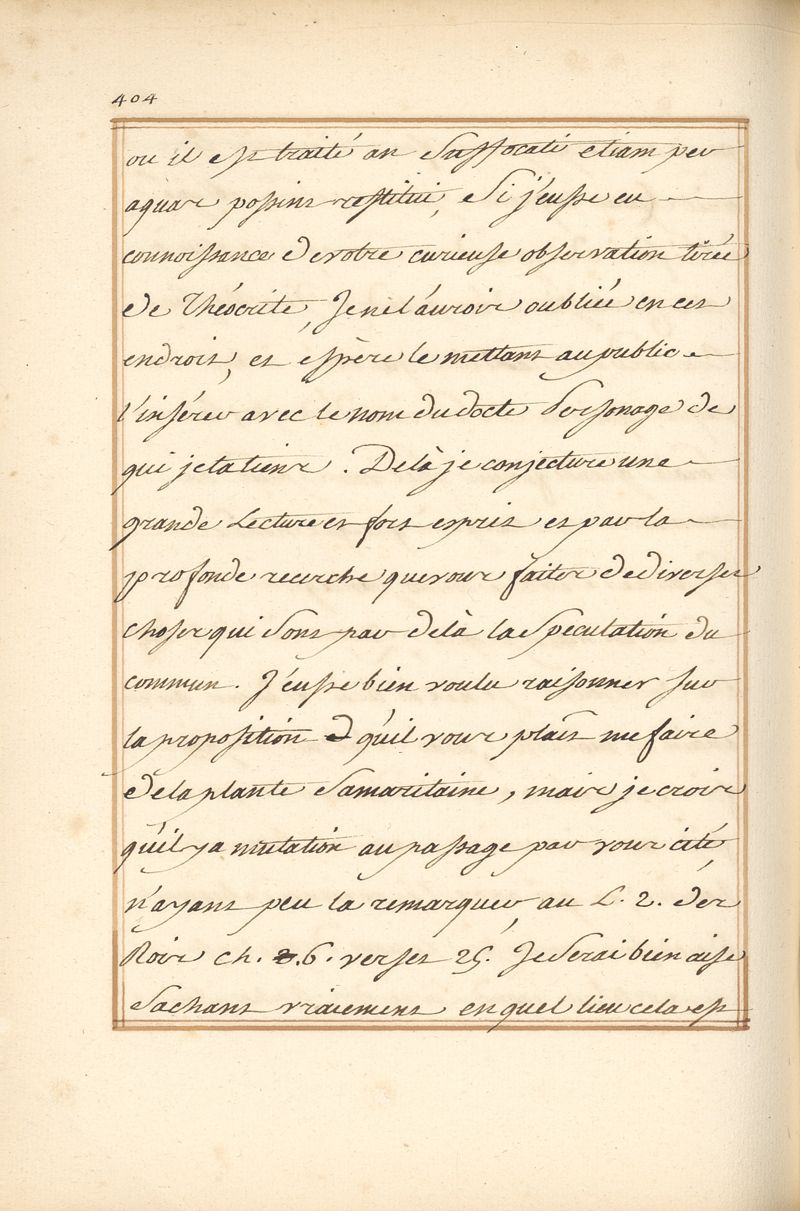 404
ou il est traité an Suffocati etiam per
aquar possint restitui, Si j'eusse eu
connoissance de votre curieuse observation tirée
de Théocrite, Je ne l'aurois oubliée en ces
endroit, et espère le mettant au public
l'insérer avec le nom du docte Personage de
qui je la tiens. De là je conjecture une
grande Lecture et fort esprit et par la
profonde recerche que vous faites de diverses
choses qui sont par delà la Speculation du
commun. J'eusse bien voulu raisonner sur
la proposition qu'il vous plait me faire
de la plante Samaritaine, mais je crois
qu'il y a mutation au passage par vous cité,
n'ayant peu la remarquer, au L. 2. des
Rois ch. 6. verset 25. Je serai bien aise
Sachant vraiement en quel lieu cela est